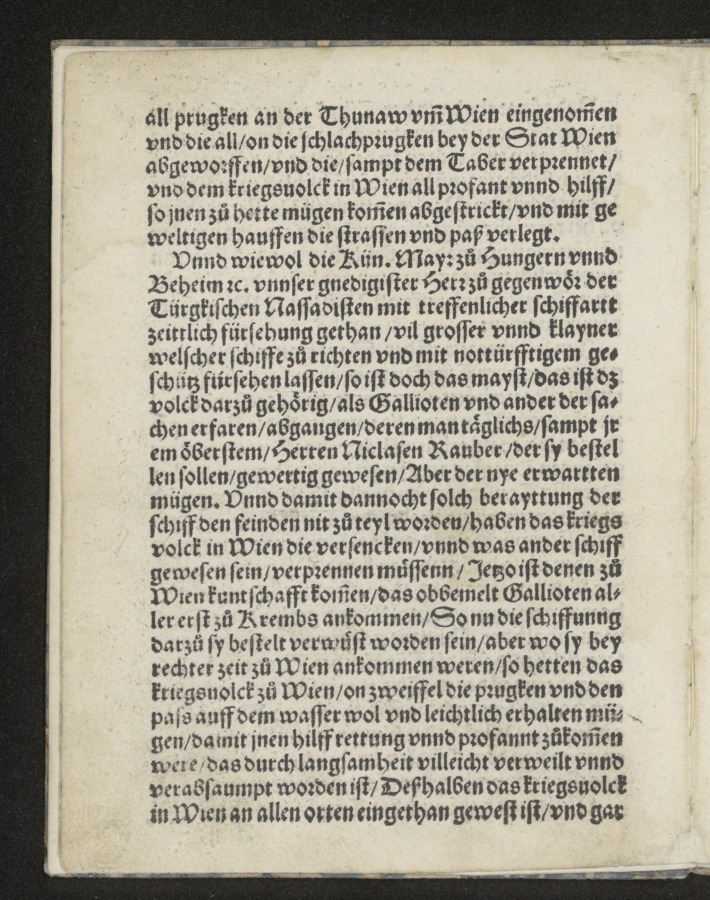 all prugken an der Thunaw vm̃ Wien eingenom̃en
vnd die all/on die schlachprugken bey der Stat Wien
abgeworffen/vnd die/sampt dem Taber verprennet/
vnd dem kriegsuolck in Wien all profant vnnd hilff/
so jnen zů hette mügen kom̃en abgestrickt/vnd mit ge
weltigen hauffen die strassen vnd paß verlegt.
Vnnd wiewol die Kün. Mayr zů Hungern vnnd
Beheim ꝛc. vnnser gnedigister Herr zů gegenwör der
Türgkischen Nassadisten mit treffenlicher schiffartt
zeittlich fürsehung gethan/vil grosser vnnd klayner
welscher schiffe zů richten vnd mit nottürfftigem ge⸗
schütz fürsehen lassen/so ist doch das mayst/das ist dz
volck darzů gehörig/als Gallioten vnd ander der sa⸗
chen erfaren/abgangen/deren man täglichs/sampt jr
em öberstem/Herren Niclasen Rauber/der sy bestel
len sollen/gewertig gewesen/Aber der nye erwartten
mügen. Vnnd damit dannocht solch berayttung der
schiff den feinden nit zů teyl worden/haben das kriegs
volck in Wien die versencken/vnnd was ander schiff
gewesen sein/verprennen müssenn/Jetzo ist denen zů
Wien kuntschafft kom̃en/das obbemelt Gallioten al⸗
ler erst zů Krembs ankommen/So nu die schiffunng
darzů sy bestelt verwüst worden sein/aber wo sy bey
rechter zeit zů Wien ankommen weren/so hetten das
kriegsuolck zů Wien/on zweiffel die prugken vnd den
pass auff dem wasser wol vnd leichtlich erhalten mü⸗
gen/damit jnen hilff rettung vnnd profannt zůkom̃en
were/das durch langsamheit villeicht verweilt vnnd
verabsaumpt worden ist/Deßhalben das kriegsuolck
in Wien an allen orten eingethan gewest ist/vnd gar